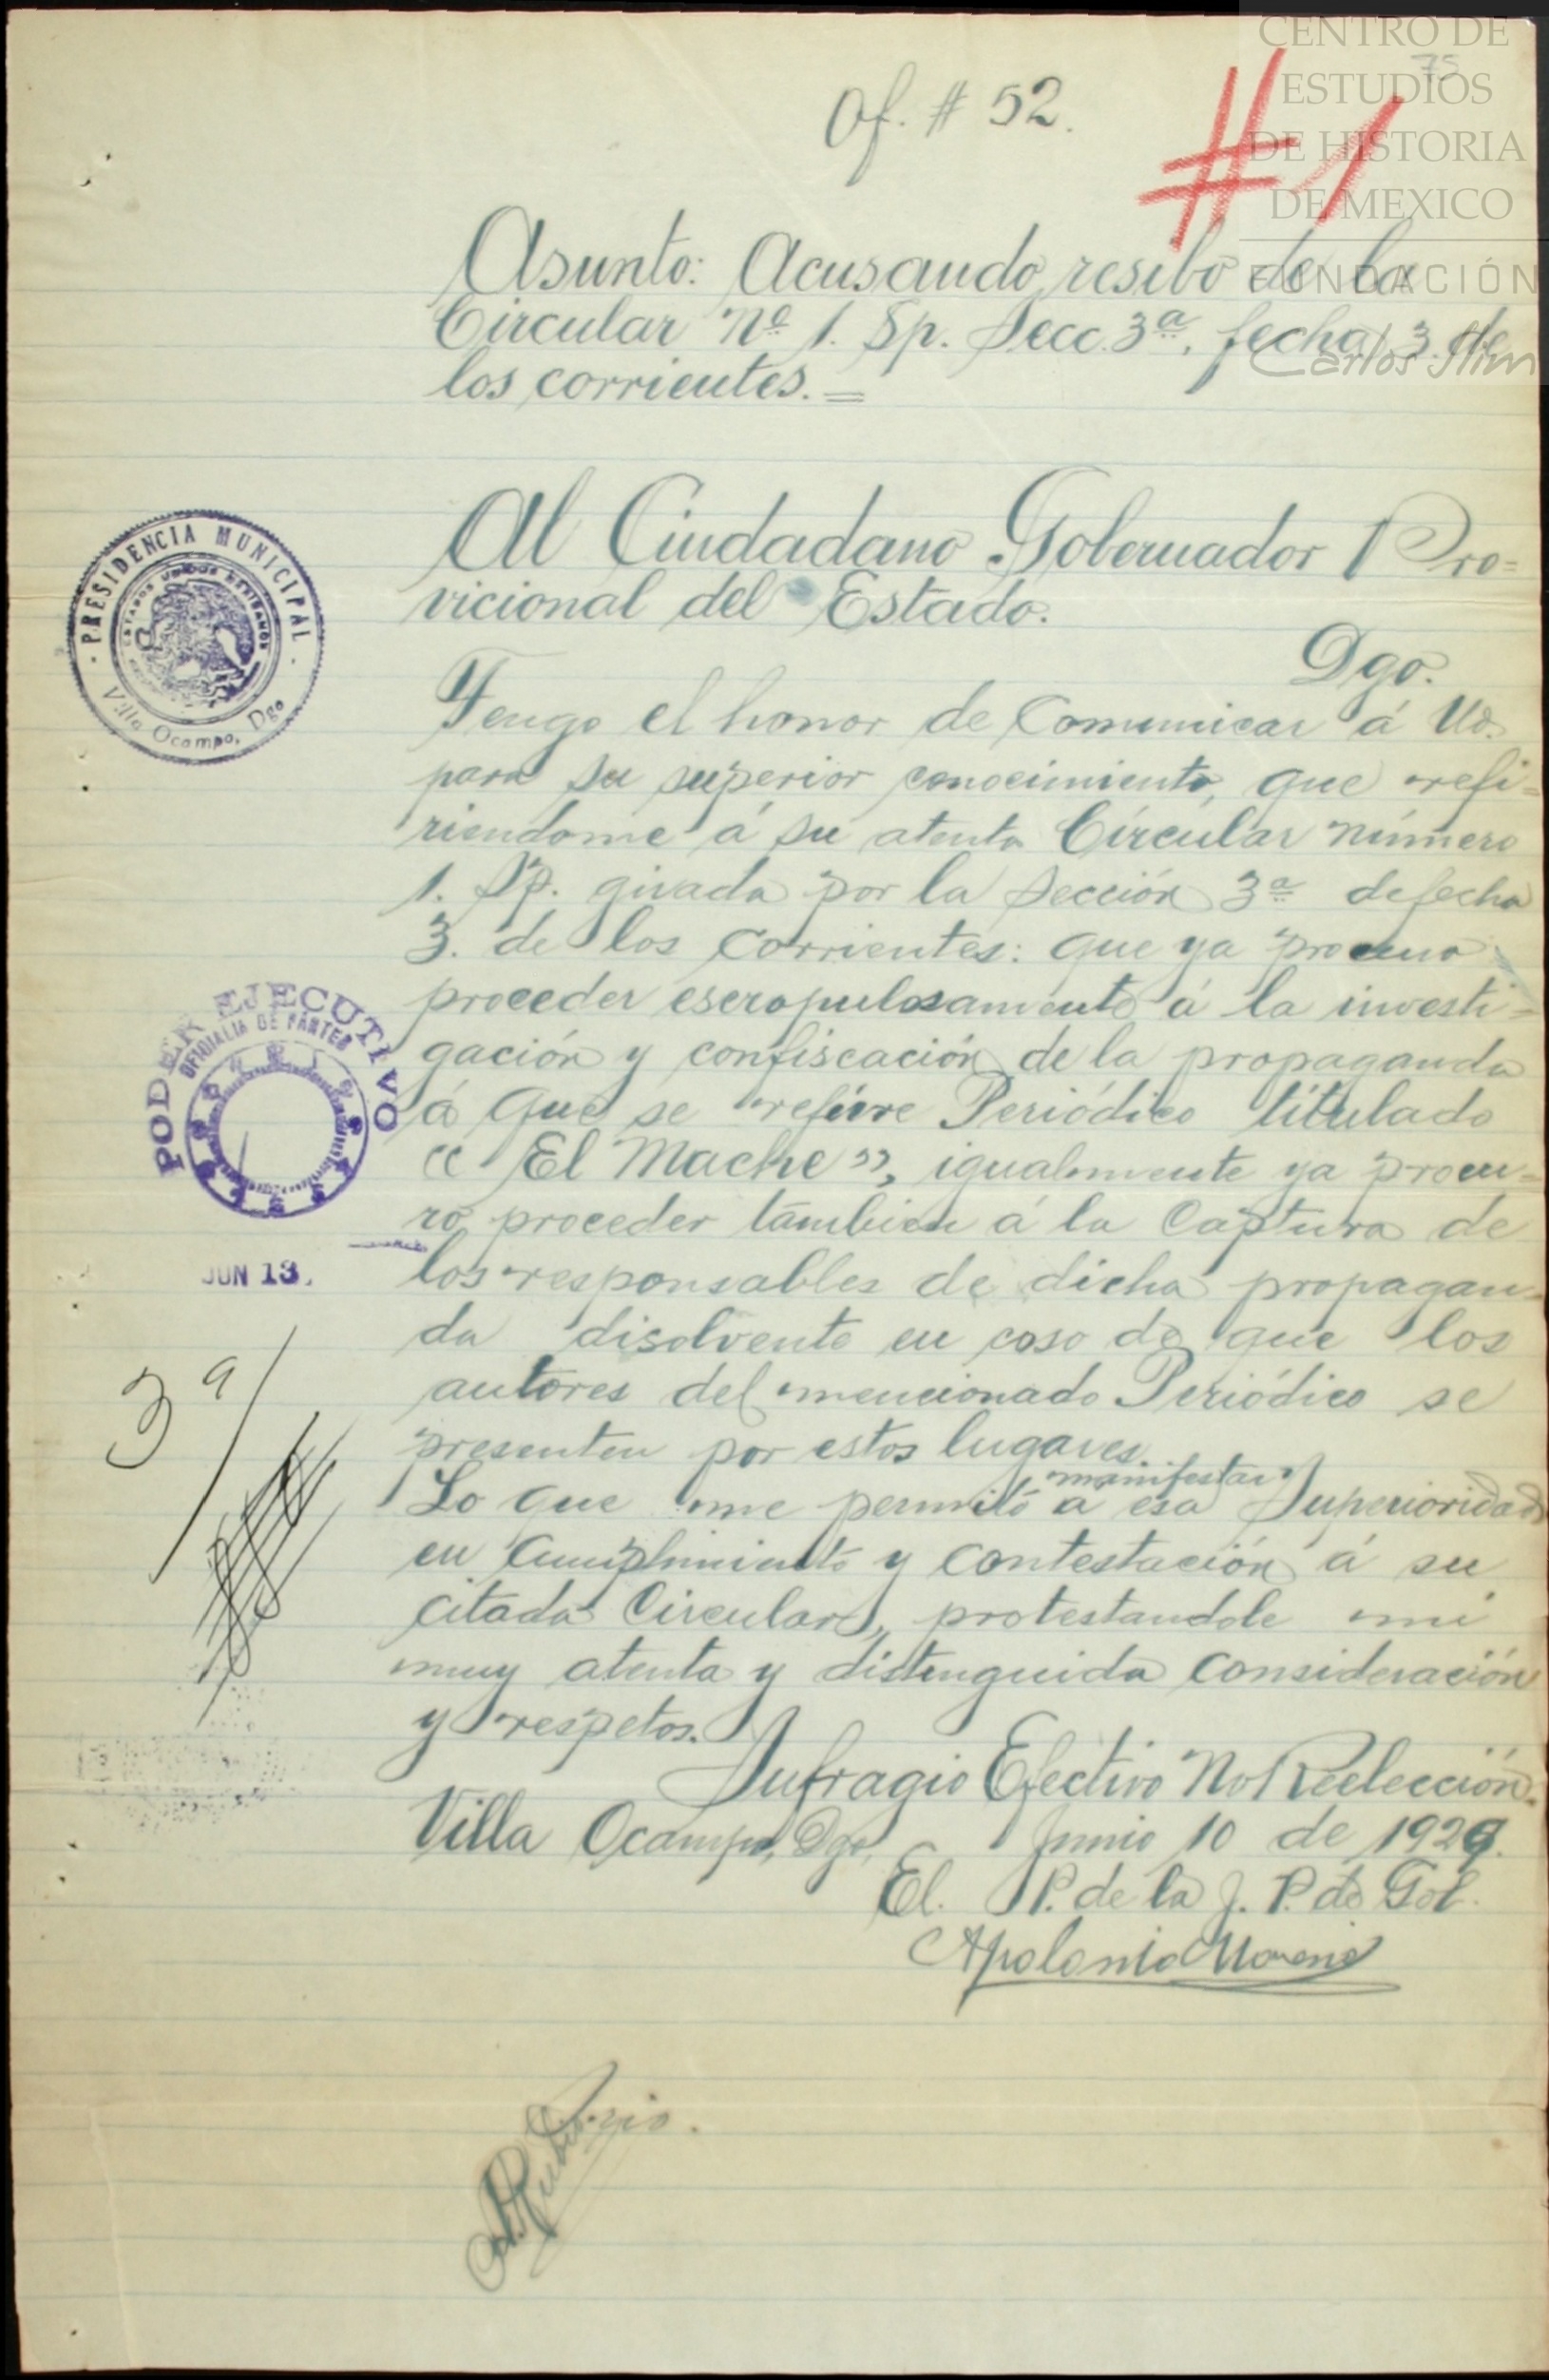 CENTRO DE
ESTUDIOS
DE HISTORIA
DE MEXICO
FUNDACIÓN
Carlos Slim
75
Of. # 52.
#1
Asunto: Acusando resibo de la
Circular Nº 1. Sp. Secc. 3ª, fecha 3 de
los corrientes.=
Al Ciudadano Gobernador Pro=
vicional del Estado.
Dgo.
PRESIDENCIA MUNICIPAL
ESTADOS UNIDOS MEXICANOS
Villa Ocampo, Dgo
Tengo el honor de Comunicar á Ud.
para su superior conocimiento, que refi=
riendome á su atenta Circular número
1. Sp. girada por la Sección 3ª de fecha
3. de los Corrientes: que ya procuro
proceder escropulosamente á la investi=
gación y confiscación de la propaganda
á que se refiere Periódico titulado
"El Mache", igualmente ya procu=
ro proceder támbien á la Captura de
los responsables de dicha propagan=
da disolvente en caso de que los
autores del mencionado Periódico se
presenten por estos lugares.
Lo que me permito manifestar á esa Superioridad
en Cumplimiento y Contestación á su
citada Circular, protestandole mi
muy atenta y distinguida Consideración
y respetos.
PODER EJECUTIVO
OFICIALIA DE PARTES
JUN 13.
3ª
Sufragio Efectivo No Reelección.
Villa Ocampo, Dgo, Junio 10 de 1929.
El. P. de la J. P. de Gob.
Apolonio Moreno